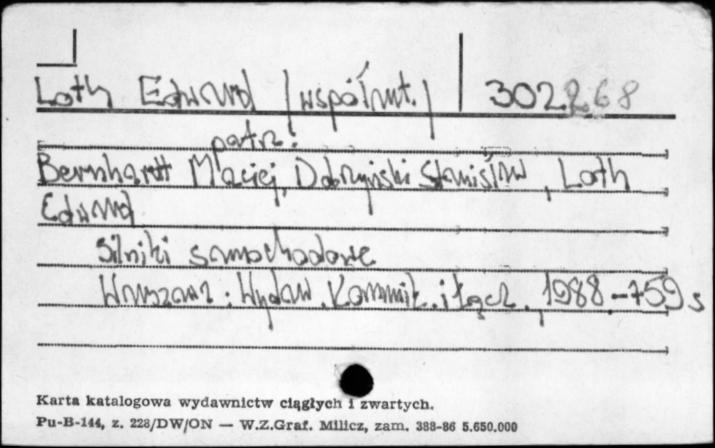 Loth Edward /współaut./ 302268
patrz:
Bernhardt Maciej, Dobrzyński Stanisław, Loth
Edward
Silniki samochodowe
Warszawa: Wydaw. Komunik. i Łącz., 1988.-759 s
Karta katalogowa wydawnictw ciągłych i zwartych.
Pu-B-144, z. 228/DW/ON — W.Z.Graf. Milicz, zam. 388-86 5.650.000